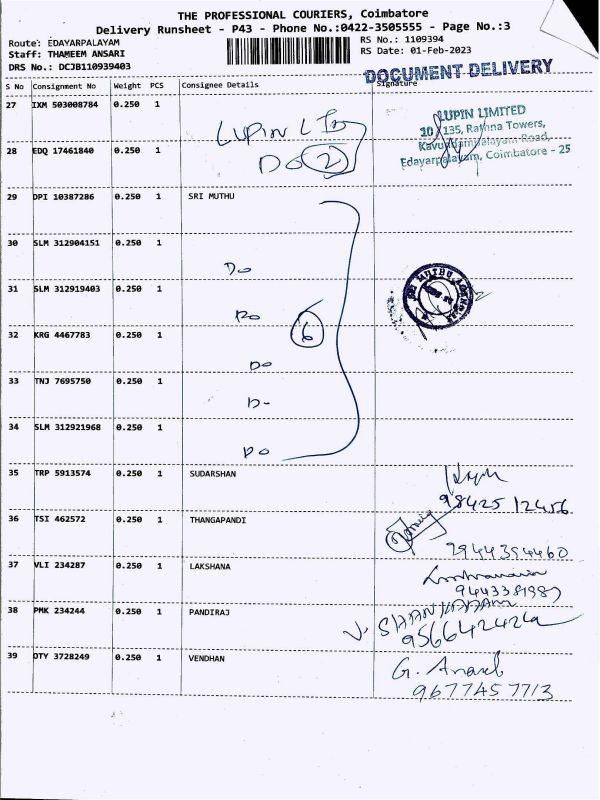 THE PROFESSIONAL COURIERS, Coimbatore
Delivery Runsheet - P43 - Phone No.:0422-3505555 - Page No.:3
Route: EDAYARPALAYAM RS No.: 1109394
Staff: THAMEEM ANSARI RS Date: 01-Feb-2023
DRS No.: DCJB110939403
DOCUMENT DELIVERY
S No Consignment No Weight PCS Consignee Details Signature
27 IXM 503008784 0.250 1
LUPIN LTD
LUPIN LIMITED
10 / 135, Rathna Towers,
Kavundampalayam Road,
Edayarpalayam, Coimbatore - 25
28 EDQ 17461840 0.250 1
Do 2
29 DPI 10387286 0.250 1 SRI MUTHU
30 SLM 312904151 0.250 1
Do
31 SLM 312919403 0.250 1
Do 6
32 KRG 4467783 0.250 1
Do
33 TNJ 7695750 0.250 1
Do
34 SLM 312921968 0.250 1
Do
35 TRP 5913574 0.250 1 SUDARSHAN
98425 12456
36 TSI 462572 0.250 1 THANGAPANDI
2944394460
37 VLI 234287 0.250 1 LAKSHANA
9443381987
38 PMK 234244 0.250 1 PANDIRAJ
V. SHANKARAM
9566424242
39 OTY 3728249 0.250 1 VENDHAN
G. Anand
9677457713